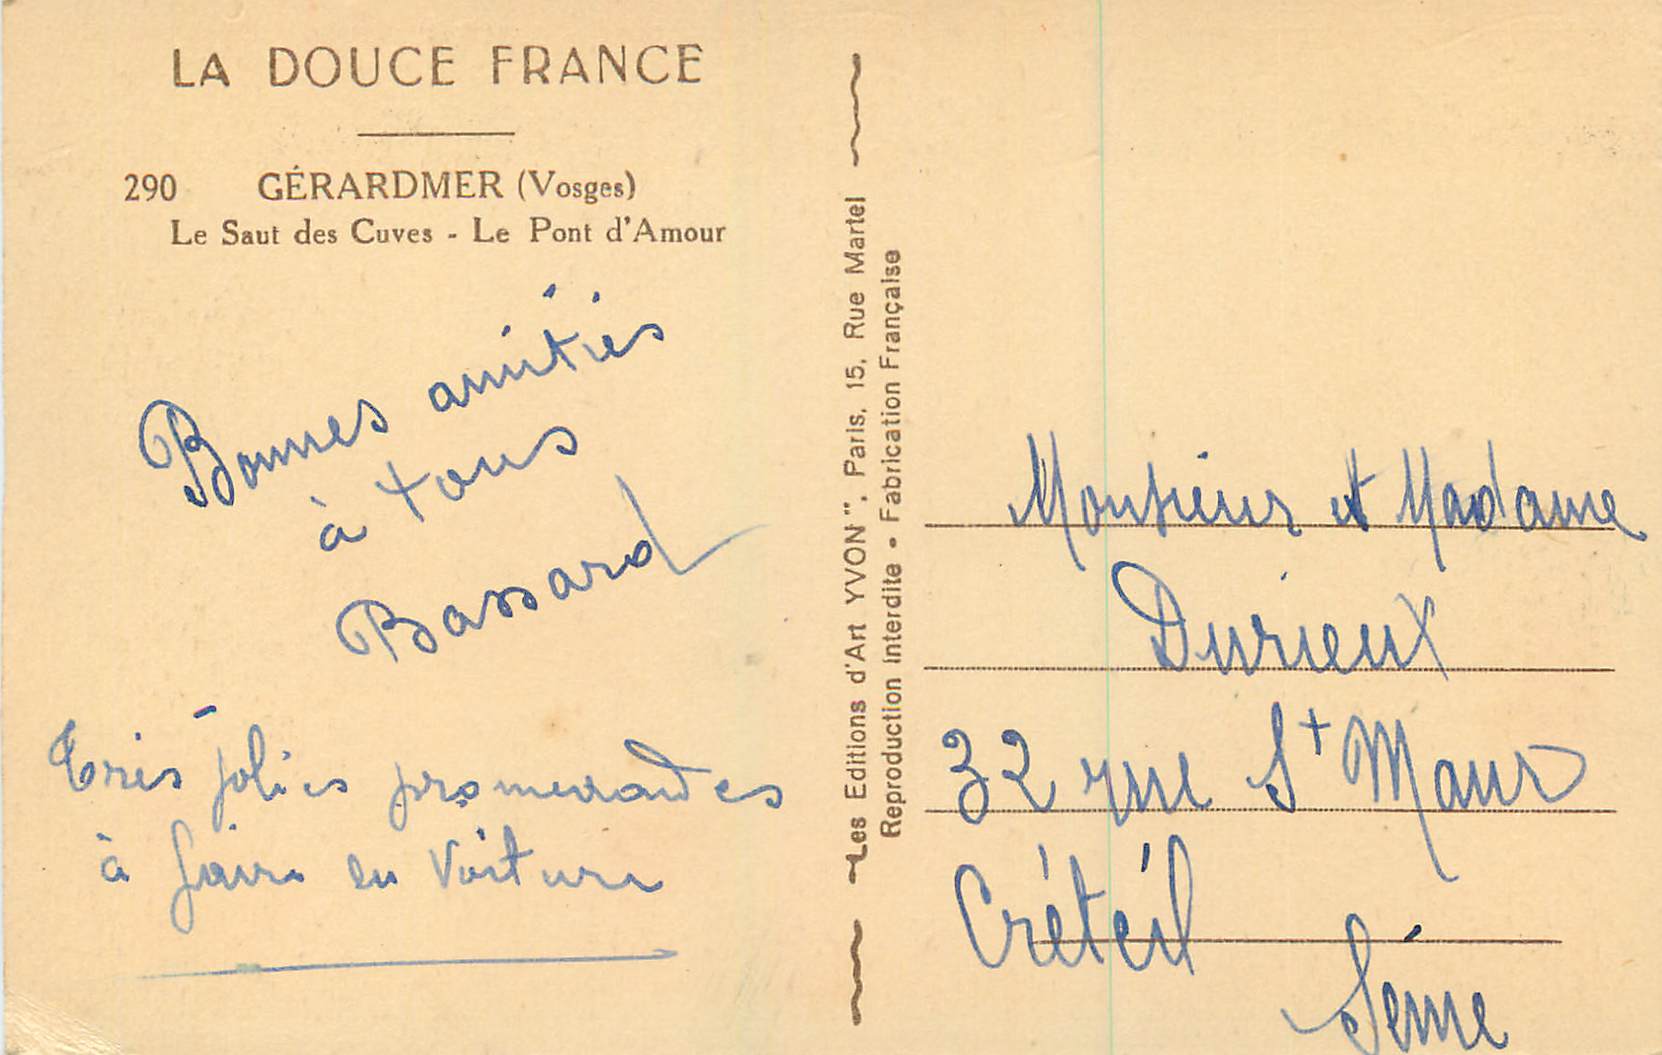 LA DOUCE FRANCE
290 GÉRARDMER (Vosges)
Le Saut des Cuves - Le Pont d'Amour
Bonnes amitiés
à tous
Bassard
Très jolies promenades
à faire en voiture
"Les Editions d'Art YVON", Paris, 15, Rue Martel
Reproduction Interdite • Fabrication Française
Monsieur et Madame
Durieux
32 rue St Maur
Créteil
Seine